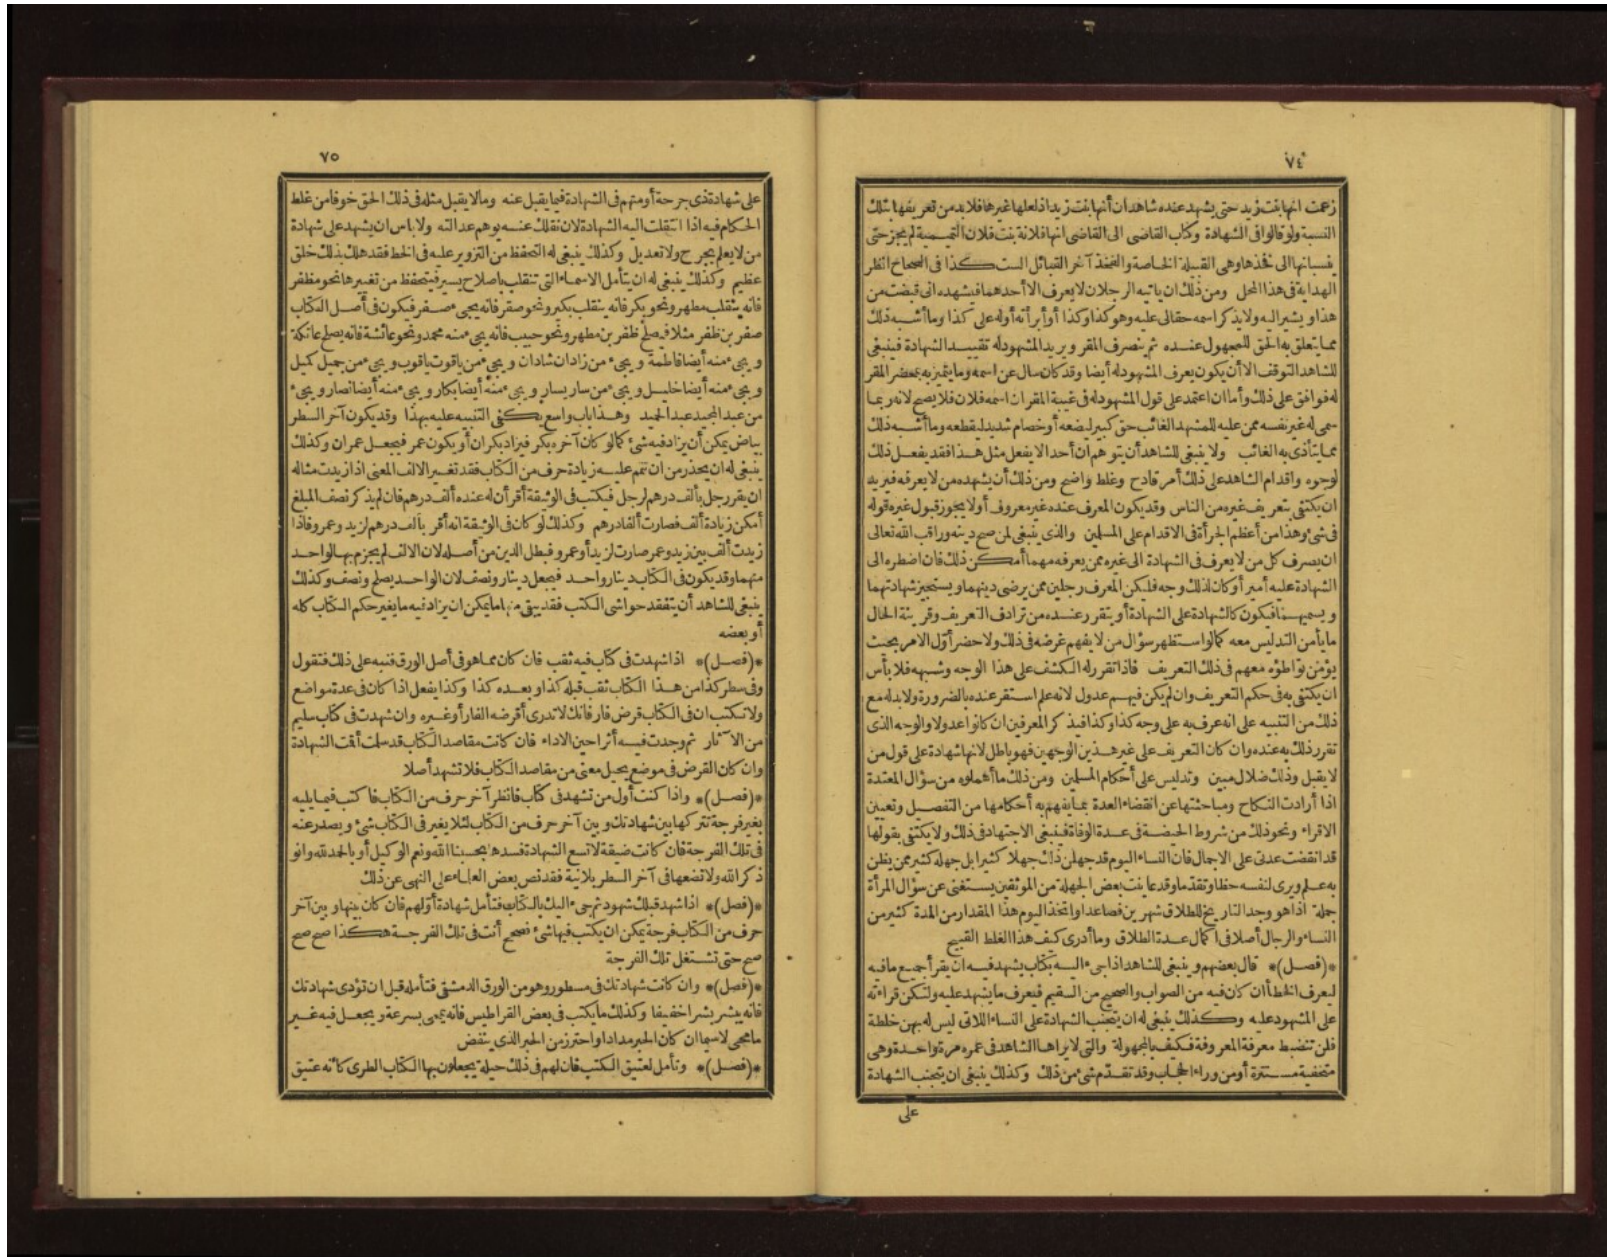 ٧٤
زعمت انها بنت زيد حتى يشهد عنده شاهدان أنها بنت زيد اذ لعلها غيرها فلا بد من تعريفها بتلك
النسبة ولو قالوا فى الشهادة وكتاب القاضى الى القاضى انها فلانة بنت فلان التميمية لم يجز حتى
ينسبانها الى نخذها وهى القبيلة الخاصة والفخذ آخر القبائل الست كذا فى الصحاح انظر
الهداية فى هذا المحل ومن ذلك ان ياتيه الرجلان لا يعرف الا أحدهما فيشهده انى قبضت من
هذا ويشير اليه ولا يذكر اسمه حقا لى عليه وهو كذا وكذا أو أبرأته أوله على كذا وما أشبه ذلك
مما يتعلق به الحق للمجهول عنده ثم ينصرف المقر ويريد المشهود له تقييد الشهادة فينبغى
للشاهد التوقف الا أن يكون يعرف المشهود له أيضا وقد كان سال عن اسمه وما يتميز به بمحضر المقر
له فوافق على ذلك وأما ان اعتمد على قول المشهود له فى غيبة المقر ان اسمه فلان فلا يصح لانه ربما
سمى له غير نفسه ممن عليه للمشهد الغائب حق كبير ليضعه أو خصام شديد ليقطعه وما أشبه ذلك
مما يتأذى به الغائب ولا ينبغى للشاهد أن يتوهم ان أحدا لا يفعل مثل هذا فقد يفعل ذلك
لوجوه واقدام الشاهد على ذلك أمر قادح وغلط واضح ومن ذلك أن يشهده من لا يعرفه فيريد
ان يكتفى بتعريف غيره من الناس وقد يكون المعرف عنده غير معروف أو لا يجوز قبول غيره قوله
فى شئ وهذا من أعظم الجرأة فى الاقدام على المسلمين والذى ينبغى لمن صح دينه وراقب الله تعالى
ان يصرف كل من لا يعرف فى الشهادة الى غيره ممن يعرفه مهما أمكن ذلك فان اضطره الى
الشهادة عليه أمير أو كان لذلك وجه فليكن المعرف رجلين ممن يرضى دينهما ويستجيز شهادتهما
ويسميهما فيكون كالشهادة على الشهادة أو يتقرر عنده من ترادف التعريف وقرينة الحال
ما يأمن التدليس معه كما لو استظهر سؤال من لا يفهم غرضه فى ذلك ولا حضر أول الامر بحيث
يؤمن تواطؤه معهم فى ذلك التعريف فاذا تقرر له الكشف على هذا الوجه وشبهه فلا بأس
ان يكتفى به فى حكم التعريف وان لم يكن فيهم عدول لانه علم استقر عنده بالضرورة ولا بد له مع
ذلك من التنبيه على انه عرف به على وجه كذا وكذا فيذكر المعرفين ان كانوا عدولا والوجه الذى
تقرر ذلك به عنده وان كان التعريف على غير هذين الوجهين فهو باطل لانها شهادة على قول من
لا يقبل وذلك ضلال مبين وتدليس على أحكام المسلمين ومن ذلك ما أهملوه من سؤال المعتدة
اذا أرادت النكاح ومباحثتها عن انقضاء العدة بما يفهم به أحكامها من التفصيل وتعيين
الاقراء ونحو ذلك من شروط الحيضة فى عدة الوفاة فينبغى الاجتهاد فى ذلك ولا يكتفى بقولها
قد انقضت عدتى على الاجمال فان النساء اليوم قد جهلن ذلك جهلا كثيرا بل جهله كثير ممن يظن
به علم ويرى لنفسه حظا وتقدما وقد عاينت بعض الجهلة من الموثقين يستغنى عن سؤال المرأة
جملة اذا هو وجد التاريخ للطلاق شهرين فصاعدا واتخذ اليوم هذا المقدار من المدة كثير من
النساء والرجال أصلا فى اكمال عدة الطلاق وما أدرى كيف هذا الغلط القبيح
*(فصل)* قال بعضهم وينبغى للشاهد اذا جىء اليه بكتاب يشهد فيه ان يقرأ جميع ما فيه
ليعرف الخطأ ان كان فيه من الصواب والصحيح من السقيم فيعرف ما يشهد عليه ولتكن قراءته
على المشهود عليه وكذلك ينبغى له ان يتجنب الشهادة على النساء اللاتى ليس له بهن خلطة
فلن تنضبط معرفة المعروفة فكيف بالمجهولة والتى لا يراها الشاهد فى عمره مرة واحدة وهى
متخفية مستترة أو من وراء الحجاب وقد تقدم شئ من ذلك وكذلك ينبغى ان يتجنب الشهادة
على
٧٥
على شهادة ذى جرحة أو متهم فى الشهادة فيما يقبل عنه وما لا يقبل مثله فى ذلك الحق خوفا من غلط
الحكام فيه اذا انتقلت اليه الشهادة لان نقلك عنه يوهم عدالته ولا باس ان يشهد على شهادة
من لا يعلم بجرح ولا تعديل وكذلك ينبغى له التحفظ من التزوير عليه فى الخط فقد هلك بذلك خلق
عظيم وكذلك ينبغى له ان يتأمل الاسماء التى تنقلب باصلاح يسير فيتحفظ من تغييرها نحو مظفر
فانه ينقلب مطهر ونحو بكر فانه ينقلب بكير ونحو صقر فانه يجىء صفر فيكون فى أصل الكتاب
صقر بن ظفر مثلا فيصلح ظفر بن مطهر ونحو حبيب فانه يجىء منه محمد ونحو عائشة فانه يصلح عاتكة
ويجىء منه أيضا فاطمة ويجىء من زادان شادان ويجىء من ياقوت ياقوب ويجىء من جميل كميل
ويجىء منه أيضا خليل ويجىء من سار يسار ويجىء منه أيضا بكار ويجىء منه أيضا نصار ويجىء
من عبد المجيد عبد الحميد وهذا باب واسع يكفى التنبيه عليه بهذا وقد يكون آخر السطر
بياض يمكن أن يزاد فيه شئ كما لو كان آخره بكر فيزاد بكران أو يكون عمر فيجعل عمران وكذلك
ينبغى له ان يحذر من ان تتمم عليه زيادة حرف من الكتاب فقد تغير الالف المعنى اذا زيدت مثاله
ان يقر رجل بألف درهم لرجل فيكتب فى الوثيقة أقر أن له عنده ألف درهم فان لم يذكر نصف المبلغ
أمكن زيادة ألف فصارت ألفا درهم وكذلك لو كان فى الوثيقة انه أقر بألف درهم لزيد وعمرو فاذا
زيدت ألف بين زيد وعمر صارت لزيد أو عمرو فبطل الدين من أصله لان الالف لم يجزم بها لواحد
منهما وقد يكون فى الكتاب دينار واحد فيجعل دينار ونصف لان الواحد يصلح ونصف وكذلك
ينبغى للشاهد أن يتفقد حواشى الكتب فقد يبقى منها ما يمكن ان يزاد فيه ما يغير حكم الكتاب كله
أو بعضه
*(فصل)* اذا شهدت فى كتاب فيه ثقب فان كان مما هو فى أصل الورق فنبه على ذلك فتقول
وفى سطر كذا من هذا الكتاب ثقب قبله كذا وبعده كذا وكذا يفعل اذا كان فى عدة مواضع
ولا تكتب ان فى الكتاب قرض فار فانك لا تدرى أقرضه الفار أو غيره وان شهدت فى كتاب سليم
من الآثار ثم وجدت فيه أثرا حين الاداء فان كانت مقاصد الكتاب قد سلمت أقت الشهادة
وان كان القرض فى موضع يحيل معنى من مقاصد الكتاب فلا تشهد أصلا
*(فصل)* واذا كنت أول من تشهد فى كتاب فانظر آخر حرف من الكتاب فاكتب فيما يليه
بغير فرجة تتركها بين شهادتك وبين آخر حرف من الكتاب لئلا يغير فى الكتاب شئ ويصدر عنه
فى تلك الفرجة فان كانت ضيقة لا تسع الشهادة فسدها بحسبنا الله ونعم الوكيل أو بالحمد لله وانو
ذكر الله ولا تضعها فى آخر السطر بلا نية فقد نص بعض العلماء على النهى عن ذلك
*(فصل)* اذا شهد قبلك شهود ثم جىء اليك بالكتاب فتأمل شهادة أولهم فان كان بينها وبين آخر
حرف من الكتاب فرجة يمكن ان يكتب فيها شئ فصحح أنت فى تلك الفرجة هكذا صح صح
صح حتى تشتغل تلك الفرجة
*(فصل)* وان كانت شهادتك فى مسطور وهو من الورق الدمشقى فتأمله قبل ان تؤدى شهادتك
فانه يبشر بشرا خفيفا وكذلك ما يكتب فى بعض القراطيس فانه يمحى بسرعة ويجعل فيه غير
ما محى لا سيما ان كان الحبر مدادا واحترز من الحبر الذى ينفض
*(فصل)* وتأمل لعتيق الكتب فان لهم فى ذلك حيلة يجعلون بها الكتاب الطرى كأنه عتيق